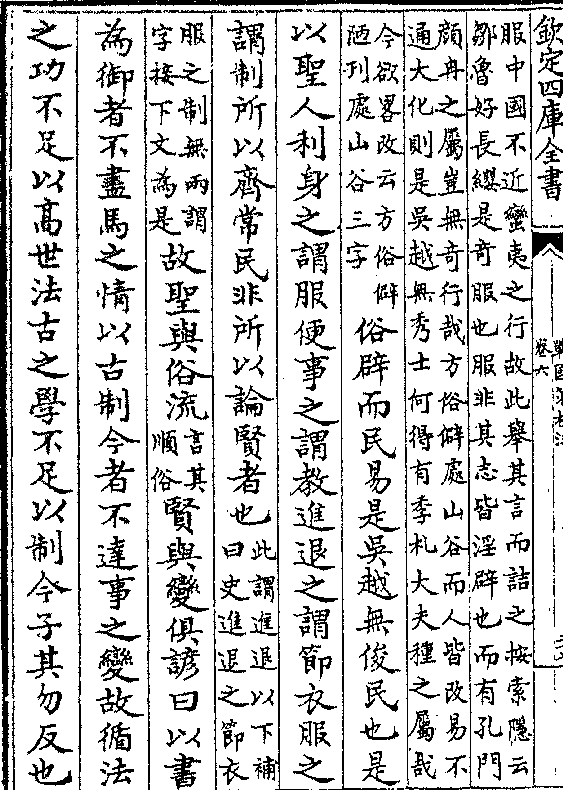 欽定四庫全書
卷六
服中國不近蠻夷之行故此舉其言而詰之按索隱云
鄒魯好長纓是奇服也服非其志皆淫辟也而有孔門
顔冉之屬豈無奇行哉方俗僻處山谷而人皆改易不
通大化則是吳越無秀士何得有季札大夫種之屬哉
今欲畧改云方俗僻
陋刊處山谷三字
俗辟而民易是吳越無俊民也是
以聖人利身之謂服便事之謂教進退之謂節衣服之
謂制所以齊常民非所以論賢者也
此謂進退以下補
曰史進退之節衣
服之制無兩謂
字接下文為是
故聖與俗流
言其
順俗
賢與變俱諺曰以書
為御者不盡馬之情以古制今者不達事之變故循法
之功不足以高世法古之學不足以制今子其勿反也